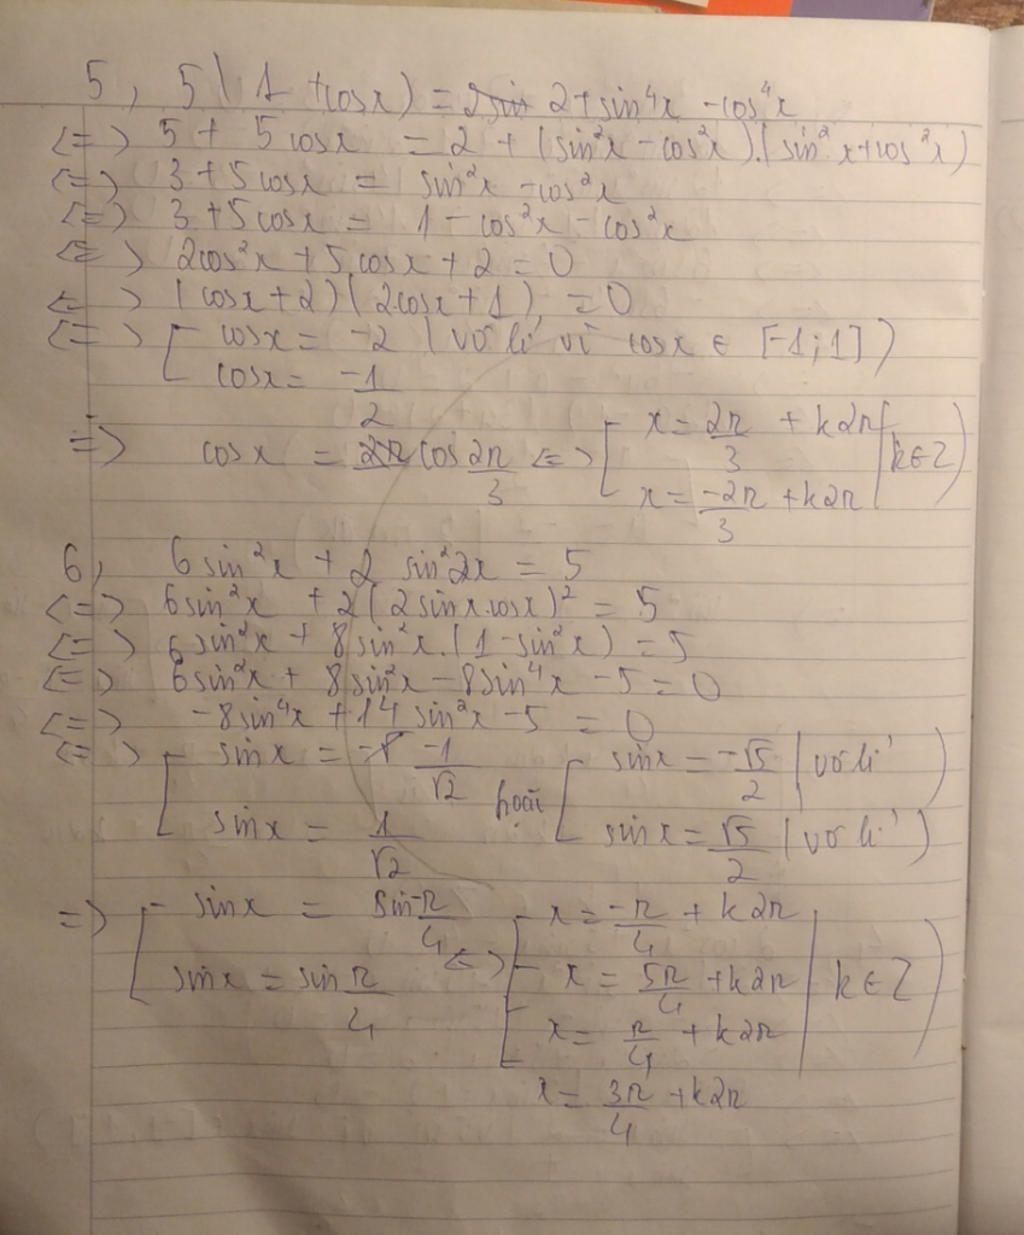 5, 5(1 + cosx) = 2 + sin⁴x - cos⁴x
<=> 5 + 5cosx = 2 + (sin²x - cos²x).(sin²x + cos²x)
<=> 3 + 5cosx = sin²x - cos²x
<=> 3 + 5cosx = 1 - cos²x - cos²x
<=> 2cos²x + 5cosx + 2 = 0
<=> (cosx + 2)(2cosx + 1) = 0
<=> [ cosx = -2 (vô lí vì cosx ∈ [-1;1])
cosx = -1/2
=> cosx = cos 2π/3 <=> [ x = 2π/3 + k2π
x = -2π/3 + k2π (k∈Z)
6, 6sin²x + 2 sin²2x = 5
<=> 6sin²x + 2(2sinx.cosx)² = 5
<=> 6sin²x + 8sin²x.(1 - sin²x) = 5
<=> 6sin²x + 8sin²x - 8sin⁴x - 5 = 0
<=> -8sin⁴x + 14sin²x - 5 = 0
<=> [ sinx = -1/√2 hoặc [ sinx = -√5/2 (vô lí)
sinx = 1/√2 sinx = √5/2 (vô lí)
=> [ sinx = sin -π/4 <=> [ x = -π/4 + k2π
x = 5π/4 + k2π (k∈Z)
sinx = sin π/4
x = π/4 + k2π
x = 3π/4 + k2π